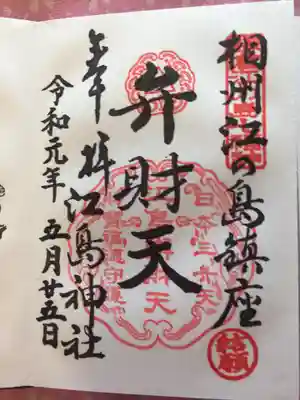 相州江の島鎮座
弁財天
奉拝 江島神社
令和元年 五月廿五日
日本三弁天